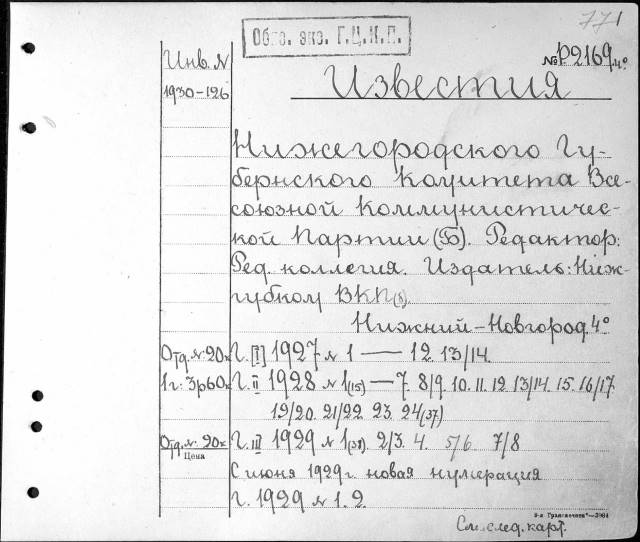 771
Обяз. экз. Г.Ц.К.П.
№P2169 4°
Инв. N
1930-126
Известия
Нижегородского Гу-
бернского Комитета Все-
союзной Коммунистичес-
кой Партии (Б). Редактор:
Ред. коллегия. Издатель: Ниж-
губком ВКП(б).
Нижний-Новгород. 4°
Отд. N. 20к Г. [I] 1927 N 1 — 12. 13/14.
1 г. 3р60к Г. II 1928 N 1(15) — 7. 8/9. 10. 11. 12. 13/14. 15. 16/17.
19/20. 21/22. 23. 24(37)
Отд. N. 20к Г. III 1929 N 1(38). 2/3. 4. 5/6. 7/8
Цена
С июня 1929 г. новая нумерация
Г. 1929 N 1. 2.
См. след. карт.